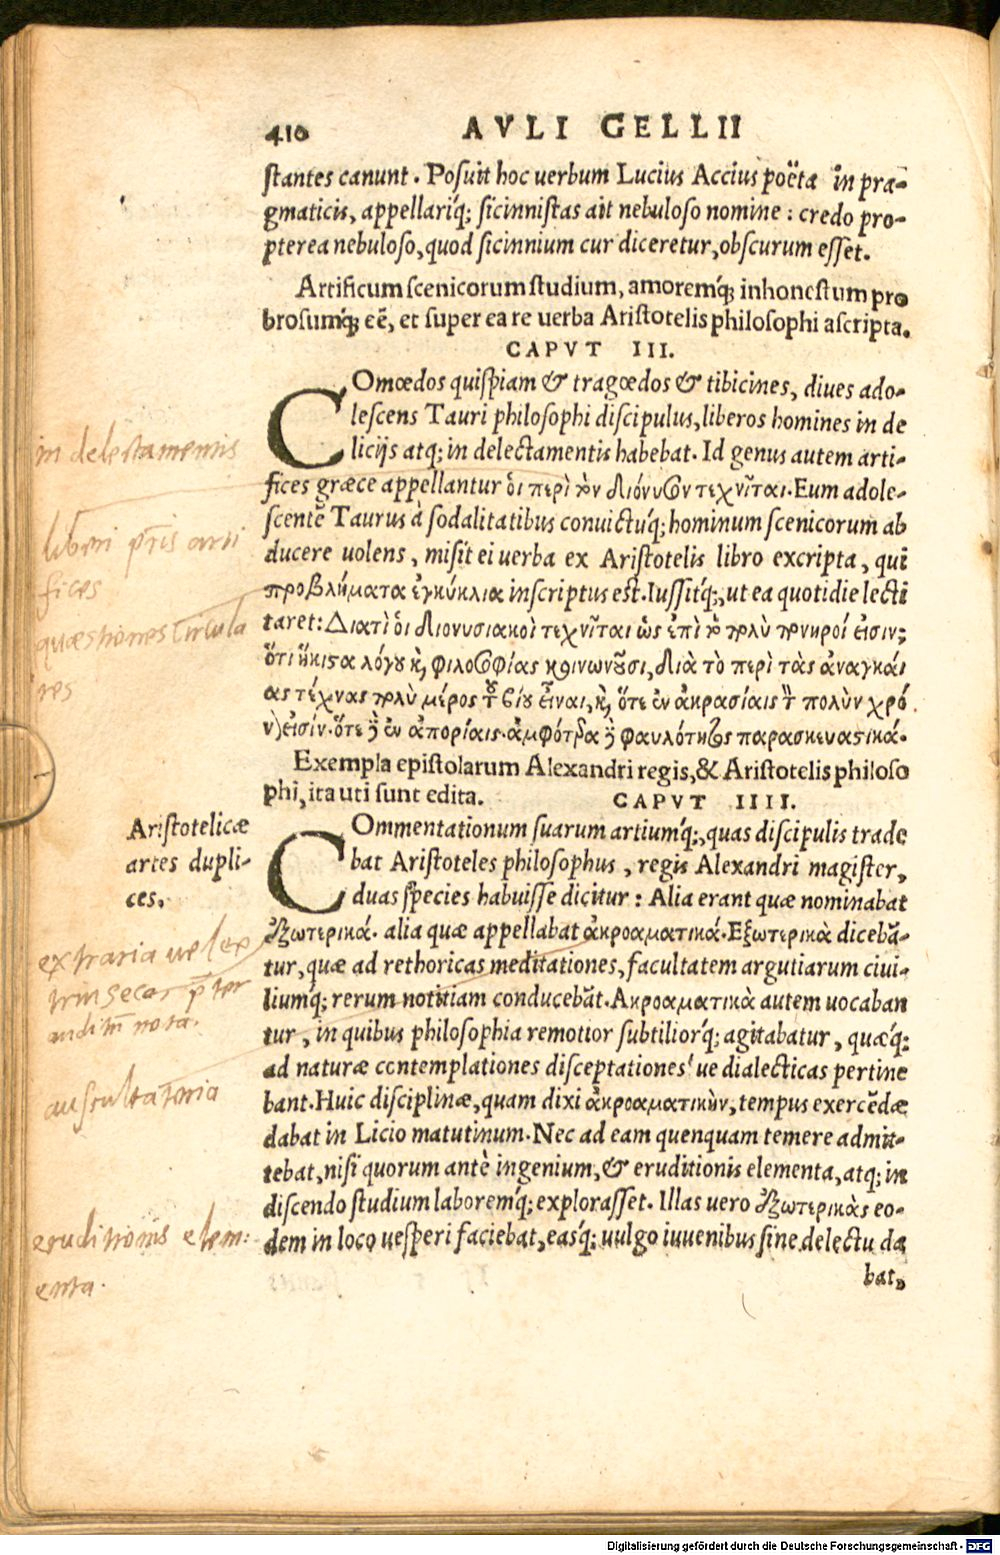 410 AVLI GELLII
stantes canunt. Posuit hoc uerbum Lucius Accius poëta in pra-
gmaticis, appellariq́; sicinnistas ait nebuloso nomine: credo pro-
pterea nebuloso, quod sicinnium cur diceretur, obscurum esset.
Artificum scenicorum studium, amoremq́; inhonestum pro
brosumq́; eē, et super ea re uerba Aristotelis philosophi ascripta.
CAPVT III.
COmœdos quispiam & tragœdos & tibicines, diues ado-
lescens Tauri philosophi discipulus, liberos homines in de
licijs atq; in delectamentis habebat. Id genus autem arti-
fices græce appellantur ὁι περὶ τὸν διόνυσον τεχνῖται. Eum adole-
scentē Taurus à sodalitatibus conuictuq́; hominum scenicorum ab
ducere uolens, misit ei uerba ex Aristotelis libro excripta, qui
προβλήματα ἐγκύκλια inscriptus est. Iussitq́;, ut ea quotidie lecti
taret: Διατὶ ὁι διονυσιακοὶ τεχνῖται ὡς ἐπὶ τὸ πολὺ πονηροί εἰσιν;
ὅτι ἥκιστα λόγου καὶ φιλοσοφίας κοινωνοῦσι, διὰ τὸ περὶ τὰς ἀναγκαί
ας τέχνας πολὺ μέρος τοῦ βίου εἶναι, καὶ ὅτε ἐν ἀκρασίαις τὸν πολὺν χρό
νον εἰσίν. ὅτε δὲ ἐν ἀπορίαις. ἀμφότερα δὲ φαυλότητος παρασκευαστικά.
Exempla epistolarum Alexandri regis, & Aristotelis philoso
phi, ita uti sunt edita. CAPVT IIII.
COmmentationum suarum artiumq́;, quas discipulis trade
bat Aristoteles philosophus, regis Alexandri magister,
duas species habuisse dicitur: Alia erant quæ nominabat
ἐξωτερικά. alia quæ appellabat ἀκροαματικά. Εξωτερικὰ dicebā-
tur, quæ ad rethoricas meditationes, facultatem argutiarum ciui-
liumq́; rerum notitiam conducebāt. Ακροαματικὰ autem uocaban
tur, in quibus philosophia remotior subtiliorq́; agitabatur, quæq́;
ad naturæ contemplationes disceptationes'ue dialecticas pertine
bant. Huic disciplinæ, quam dixi ἀκροαματικὴν, tempus exercēdæ
dabat in Licio matutinum. Nec ad eam quenquam temere admit-
tebat, nisi quorum antè ingenium, & eruditionis elementa, atq; in
discendo studium laboremq́; explorasset. Illas uero ἐξωτερικὰς eo-
dem in loco uesperi faciebat, easq́; uulgo iuuenibus sine delectu da
bat,
Aristotelicæ
artes dupli-
ces.
in delectamentis
liberi pr̄is arti
fices
quæstiones circula
res
extraria uel ex
trinsecas
auscultatoria
eruditionis elem:
enta.
Digitalisierung gefördert durch die Deutsche Forschungsgemeinschaft - DFG